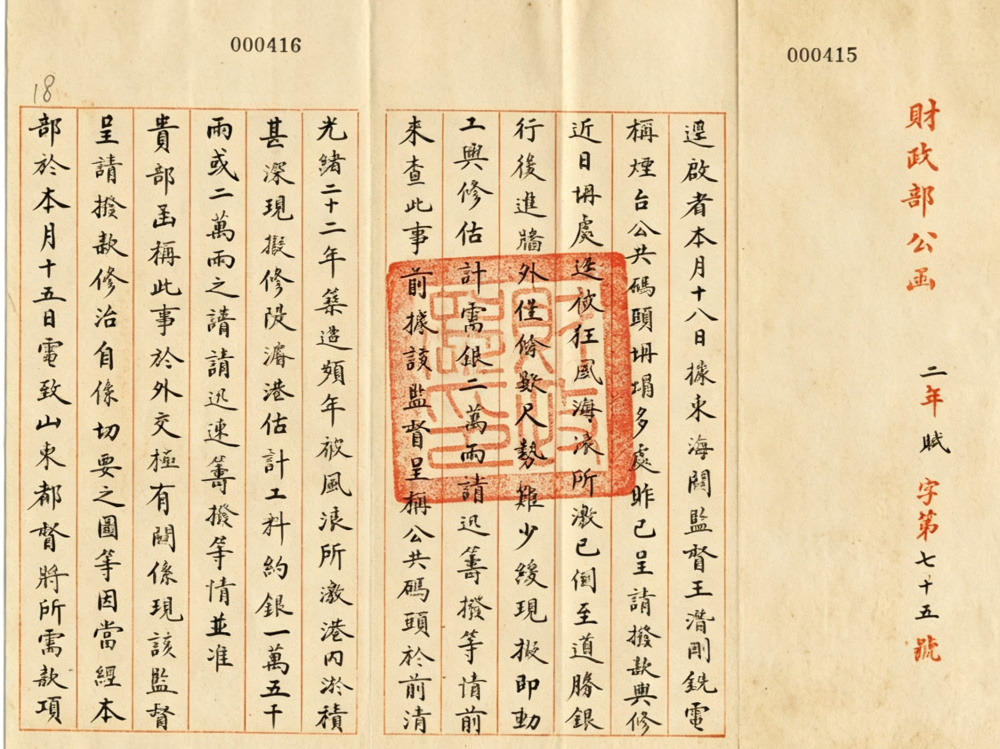 000415
財政部公函
二年賦字第七十五號
逕啟者本月十八日據東海關監督王潛剛銑電
稱煙台公共碼頭坍塌多處昨已呈請撥款興修
近日坍處迭被狂風海浪所激已倒至道勝銀
行後進牆外僅餘數尺勢難少緩現擬即動
工興修估計需銀二萬兩請迅籌撥等情前
來查此事前據該監督呈稱公共碼頭於前清
000416
18
光緒二十二年築造頻年被風浪所激港內淤積
甚深現擬修隄濬港估計工料約銀一萬五千
兩或二萬兩之請請迅速籌撥等情並准
貴部函稱此事於外交極有關係現該監督
呈請撥款修治自係切要之圖等因當經本
部於本月十五日電致山東都督將所需款項